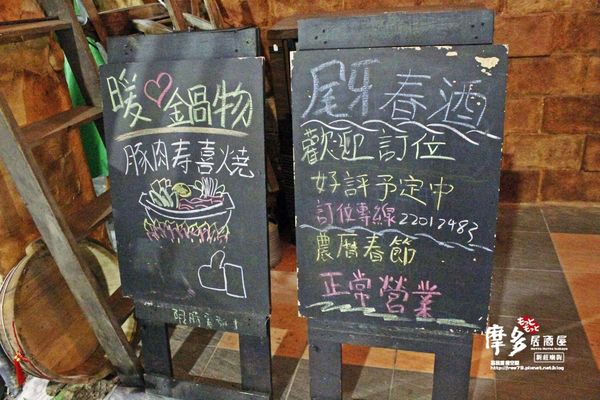 暖♡鍋物
豚肉寿喜燒
尾牙春酒
歡迎訂位
好評予定中
訂位專線22012483
農曆春節
正常營業
摩多居酒屋
新莊廟街
http://jree78.pixnet.net/blog